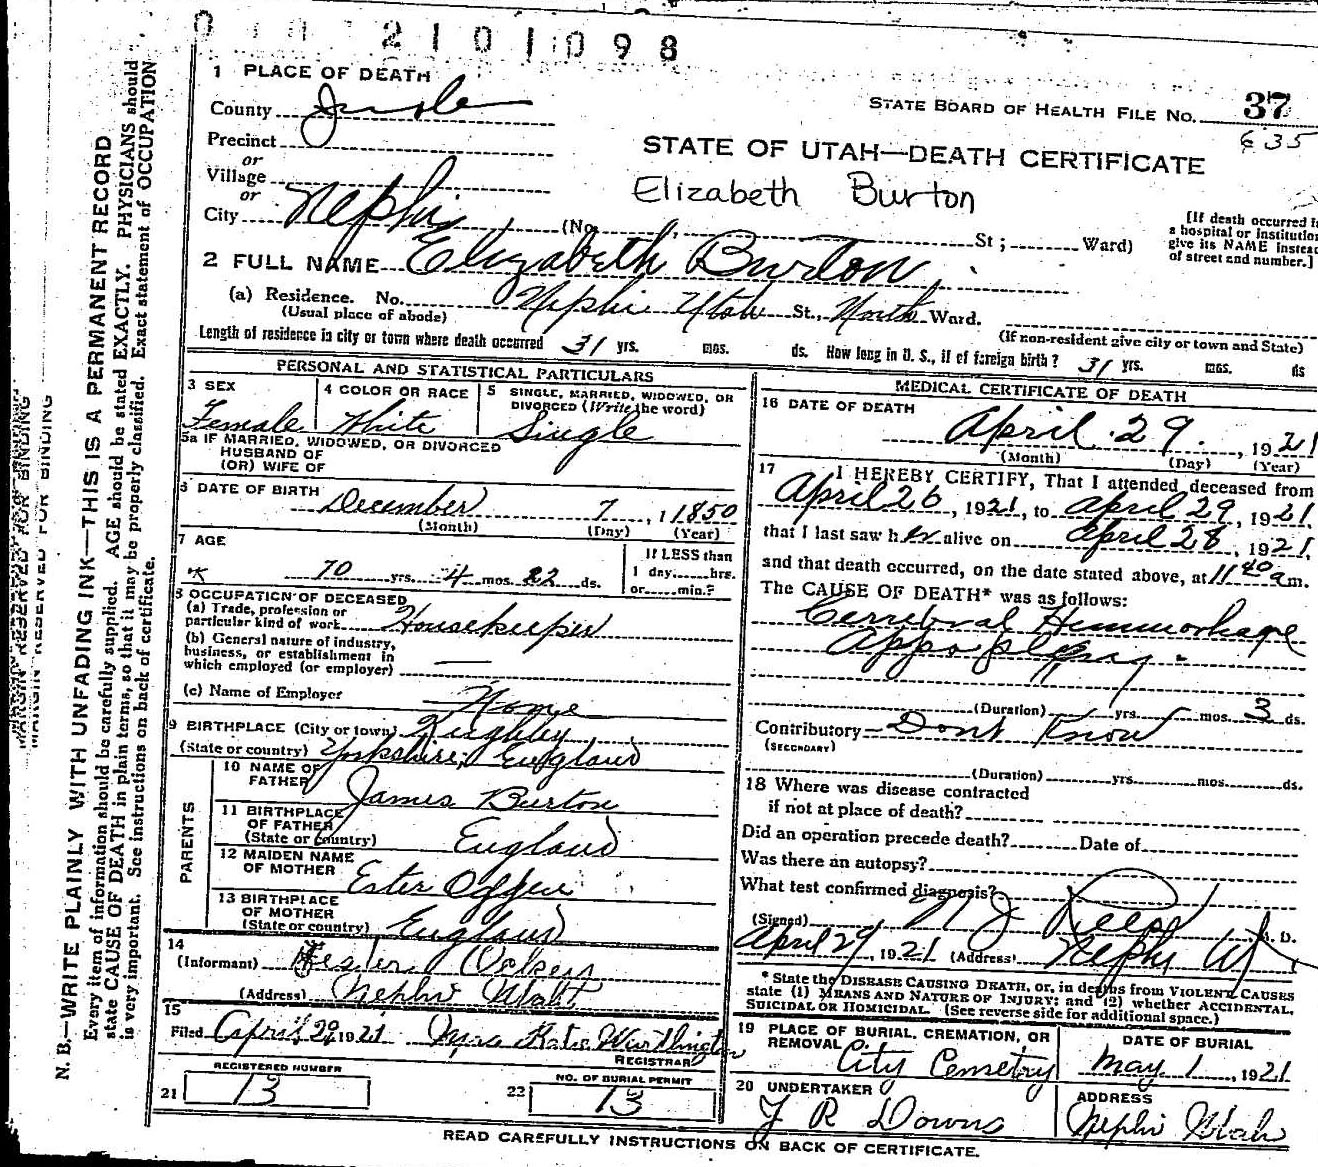 2101098
1 PLACE OF DEATH
County Juab
STATE BOARD OF HEALTH FILE No. 37
635
Precinct
or
STATE OF UTAH—DEATH CERTIFICATE
Village
or
Elizabeth Burton
City Nephi (No. St; Ward)
[If death occurred in
a hospital or institution
give its NAME instead
of street and number.]
2 FULL NAME Elizabeth Burton
(a) Residence. No. Nephi Utah St., North Ward.
(Usual place of abode)
(If non-resident give city or town and State)
Length of residence in city or town where death occurred 31 yrs. mos. ds. How long in U. S., if of foreign birth? 31 yrs. mos. ds
PERSONAL AND STATISTICAL PARTICULARS
3 SEX
Female
4 COLOR OR RACE
White
5 SINGLE, MARRIED, WIDOWED, OR
DIVORCED (Write the word)
Single
5a IF MARRIED, WIDOWED, OR DIVORCED
HUSBAND OF
(OR) WIFE OF
6 DATE OF BIRTH
December 7, 1 1850
(Month) (Day) (Year)
7 AGE
70 yrs. 4 mos. 22 ds.
If LESS than
1 day, hrs.
or min.?
8 OCCUPATION OF DECEASED
(a) Trade, profession or
particular kind of work Housekeeper
(b) General nature of industry,
business, or establishment in
which employed (or employer)
(c) Name of Employer Home
9 BIRTHPLACE (City or town) Kighley
(State or country) Yorkshire, England
PARENTS
10 NAME OF
FATHER James Burton
11 BIRTHPLACE
OF FATHER
(State or country) England
12 MAIDEN NAME
OF MOTHER Ester
13 BIRTHPLACE
OF MOTHER
(State or country) England
14
(Informant) Hester
(Address) Nephi Utah
15
Filed April 29, 1921 Mrs Kate Worthington
REGISTRAR
REGISTERED NUMBER
21 13
NO. OF BURIAL PERMIT
22 13
MEDICAL CERTIFICATE OF DEATH
16 DATE OF DEATH
April 29, 1921
(Month) (Day) (Year)
17 I HEREBY CERTIFY, That I attended deceased from
April 26, 1921, to April 29, 1921
that I last saw her alive on April 28, 1921,
and that death occurred, on the date stated above, at 11 40 a m.
The CAUSE OF DEATH* was as follows:
Cerrebral Hemmorhage
Appoplexy.
(Duration) yrs. mos. 3 ds.
Contributory Dont Know
(SECONDARY)
(Duration) yrs. mos. ds.
18 Where was disease contracted
if not at place of death?
Did an operation precede death? Date of
Was there an autopsy?
What test confirmed diagnosis?
(Signed) N J Rees M. D.
April 29, 1921 (Address) Nephi Ut
* State the DISEASE CAUSING DEATH, or, in deaths from VIOLENT CAUSES
state (1) MEANS AND NATURE OF INJURY; and (2) whether ACCIDENTAL,
SUICIDAL OR HOMICIDAL. (See reverse side for additional space.)
19 PLACE OF BURIAL, CREMATION, OR
REMOVAL City Cemetry
DATE OF BURIAL
May 1, 1921
20 UNDERTAKER
J R Downs
ADDRESS
Nephi Utah
READ CAREFULLY INSTRUCTIONS ON BACK OF CERTIFICATE.
MARGIN RESERVED FOR BINDING
N. B.—WRITE PLAINLY WITH UNFADING INK—THIS IS A PERMANENT RECORD
Every item of information should be carefully supplied. AGE should be stated EXACTLY. PHYSICIANS should
state CAUSE OF DEATH in plain terms, so that it may be properly classified. Exact statement of OCCUPATION
is very important. See instructions on back of certificate.